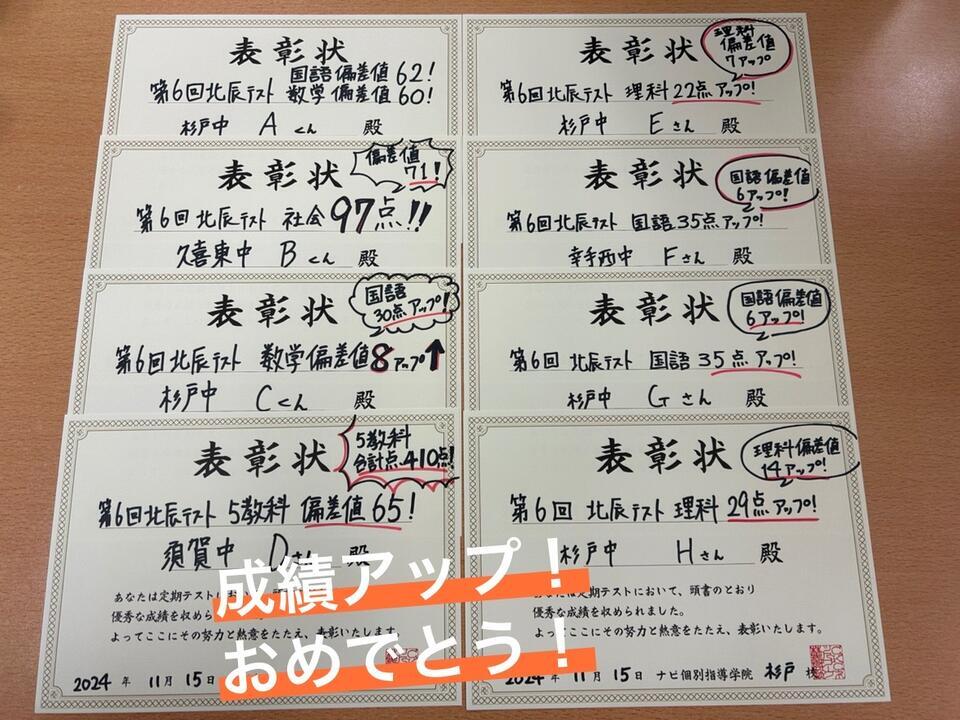 表彰状
国語偏差値 62!
第6回北辰テスト 数学偏差値 60!
杉戸中 A くん 殿
表彰状
偏差値
71!
第6回北辰テスト 社会 97点!!
久喜東中 B くん 殿
表彰状
国語
30点アップ!
第6回北辰テスト 数学偏差値8アップ↑
杉戸中 C くん 殿
表彰状
5教科
合計点410点!
第6回北辰テスト 5教科 偏差値65!
須賀中 D さん 殿
あなたは定期テストにおいて、頭書
優秀な成績を収めら
よってここにその努力と熱意をたたえ、表彰いたします。
2024 年 11月 15日
表彰状
理科
偏差値
7アップ
第6回北辰テスト 理科 22点アップ!
杉戸中 E さん 殿
表彰状
国語偏差値
6アップ!
第6回北辰テスト 国語35点アップ!
幸手西中 F さん 殿
表彰状
国語偏差値
6アップ!
第6回 北辰テスト 国語 35点アップ!
杉戸中 G さん 殿
表彰状
理科偏差値
14アップ!
第6回 北辰テスト 理科 29点アップ!
杉戸中 H さん 殿
あなたは定期テストにおいて、頭書のとおり
優秀な成績を収められました。
よってここにその努力と熱意をたたえ、表彰いたします。
2024 年 11月 15日 ナビ個別指導学院 杉戸 校
成績アップ!
おめでとう!